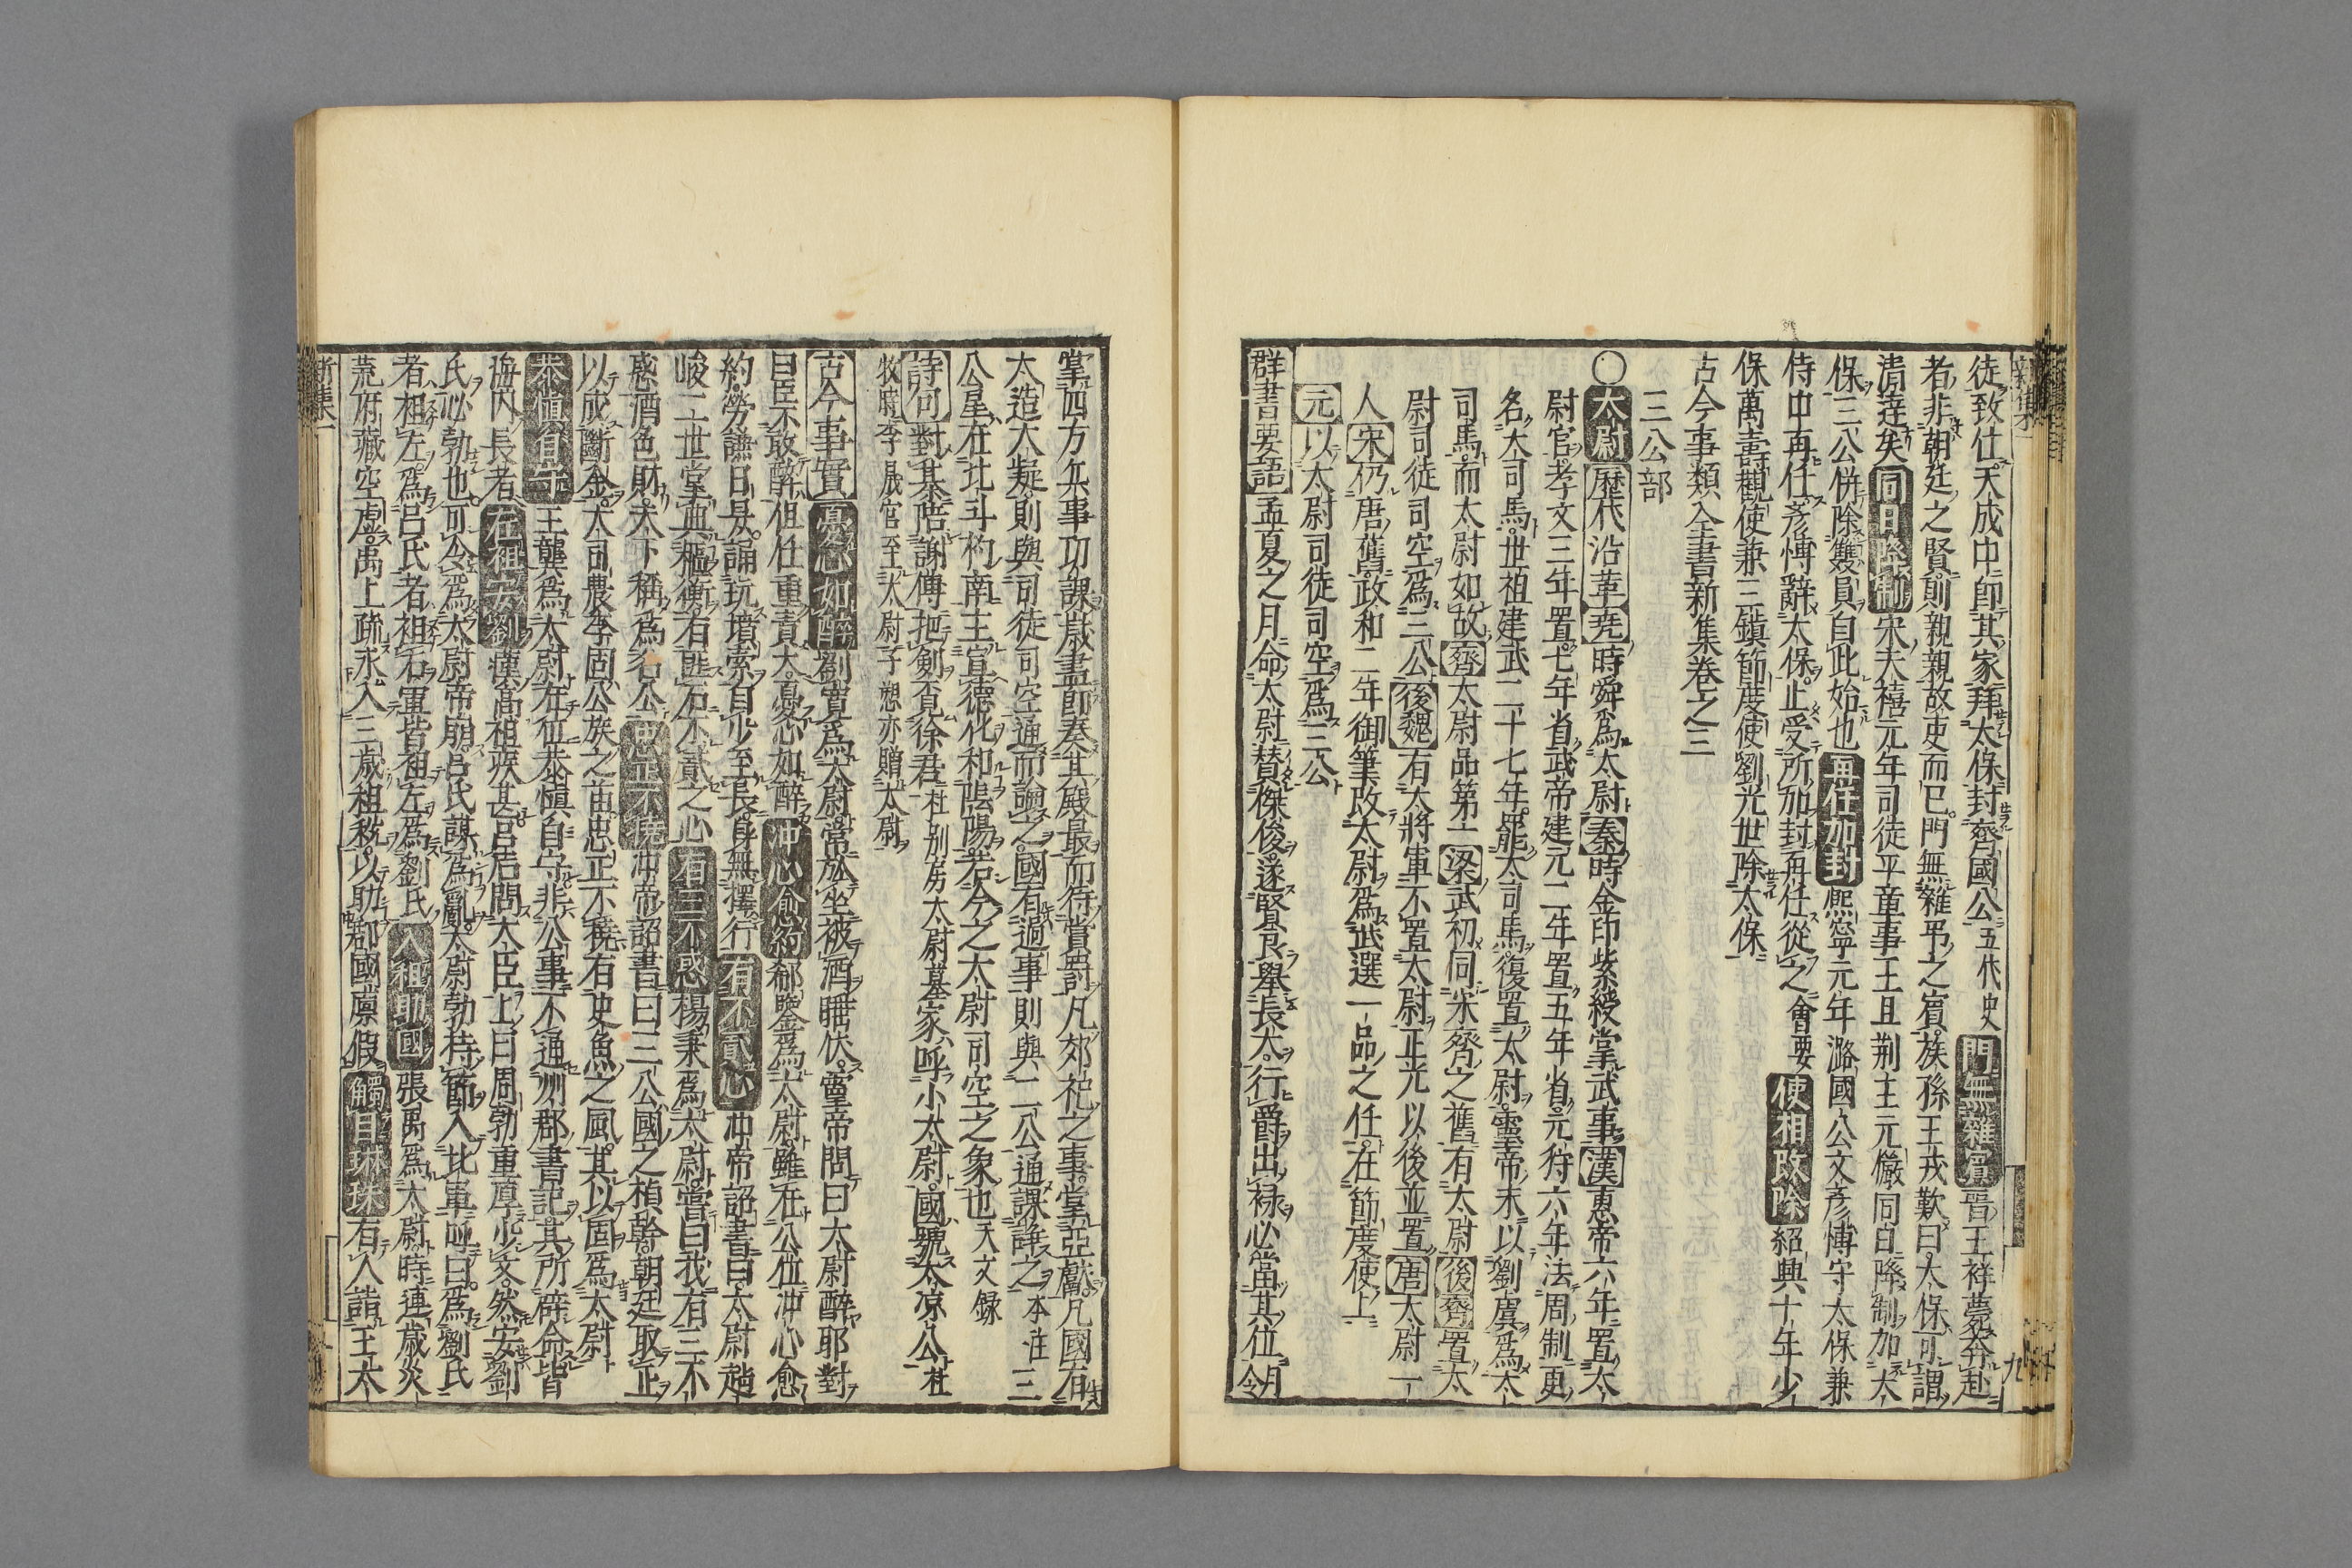 徒致仕天成中卽其家拜太保封齊國公五代史門無雜賓晉王祥薨奔赴
者非朝廷之賢則親親故吏而已門無雜弔之賓族孫王戎歎曰太保可謂
清達矣同日降制宋天禧元年司徒平章事王旦荆王元儼同日降制加太
保三公併除雙員自此始也再任加封熈寧元年潞國公文彦愽守太保兼
侍中再任彦愽辭太保止受所加封再任從之會要使相改除紹興十年少
保萬壽觀使兼三鎭節度使劉光世除太保
古今事類全書新集卷之三
三公部
○太尉歷代沿革堯時舜爲太尉秦時金印紫綬掌武事漢惠帝六年置太
尉官孝文三年置七年省武帝建元二年置五年省元狩六年法周制更
名大司馬世祖建武二十七年罷大司馬復置太尉靈帝末以劉虞爲大
司馬而太尉如故齊太尉品第一梁武初同宋齊之舊有太尉後齊置太
尉司徒司空爲三公後魏有大將軍不置太尉正光以後並置唐太尉一
人宋仍唐舊政和二年御筆改太尉爲武選一品之任在節度使上
元以太尉司徒司空爲三公
群書要語孟夏之月命太尉賛傑俊遂賢良舉長大行爵出禄必當其位月令
掌四方兵事功課嵗盡卽奏其殿最而待賞罰凡郊祀之事掌亞獻凡國有
大造大疑則與司徒司空通而論之國有過事則與二公通諫諍之本注三
公星在北斗杓南主宣德化和隂陽若今之太尉司空之象也天文録
詩句對棊陪謝傅把劍覓徐君杜別房太尉墓家家呼小太尉國號大凉公杜
牧時李晟官至太尉子愬亦贈太尉
古今事實憂心如醉劉寛爲太尉常於坐被酒睡伏靈帝問曰太尉醉耶對
曰臣不敢醉但任重責大憂心如醉冲心愈約郗鑒爲太尉雖在公位冲心愈
約勞謙日昃誦玩墳索自少至長身無擇行有不貳心冲帝詔書曰太尉趙
峻二世掌典樞衡有匪石不貳之心有三不惑楊秉爲太尉嘗曰我有三不
惑酒色財天下稱爲名公忠正不撓冲帝詔書曰三公國之楨幹朝廷取正
以成斷金太司農李固公族之苗忠正不撓有史魚之風其以固爲太尉
恭愼自守王龔爲太尉在位恭愼自守非公事不通州郡書記其所辟命皆
海内長者左袒安劉漢高祖疾甚呂后問大臣上曰周勃重厚少文然安劉
氏必勃也可令爲太尉帝崩呂氏謀爲亂太尉勃持節入北軍呼曰爲劉氏
者袒左爲呂氏者袒右軍皆袒左爲劉氏入租助國張禹爲太尉時連嵗災
荒府藏空虚禹上疏求入三嵗租税以助郡國廪假觸目琳珠有人詣王太
新集一